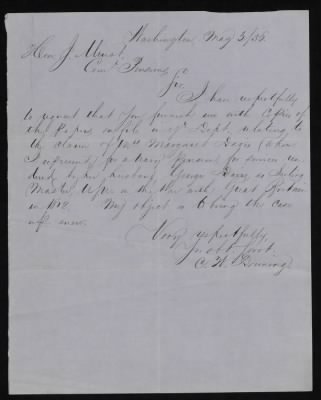 Washington May 3/55
Hon J. Minot,
Com. Pensions,
Sir,
I have respectfully
to request that you furnish me with Copies of
the Papers on file in yr Dept. relating to
the claim of Mrs Margaret (whom
I represent) for a Navy Pension for services ren
dered by her husband George as Sailing
Master in the War with Great Britain
in 1812. My object is to bring the case
up anew.
Very respectfully,
Yr obt Servt.
C. W.